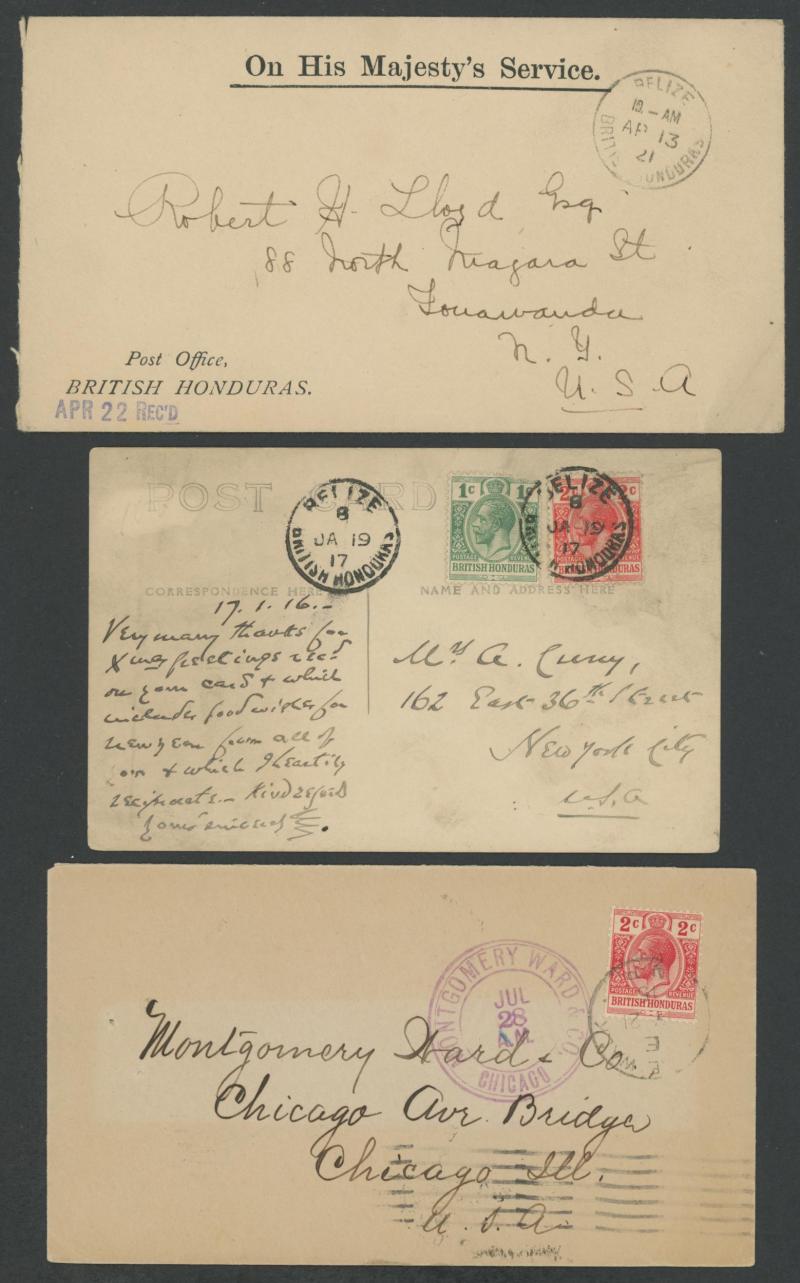 On His Majesty's Service.
BELIZE
10 - AM
AP 13
21
BRITISH HONDURAS
Robert H. Lloyd Esq
88 North Niagara St
Tonawanda
N. Y.
U. S. A
Post Office,
BRITISH HONDURAS.
APR 22 REC'D
POST CARD
BELIZE
8
JA 19
17
BRITISH HONDURAS
1c 1c
POSTAGE REVENUE
BRITISH HONDURAS
2c 2c
POSTAGE REVENUE
BRITISH HONDURAS
BELIZE
8
JA 19
17
BRITISH HONDURAS
CORRESPONDENCE HERE
NAME AND ADDRESS HERE
17.1.16.-
Very many thanks for
Xmas greetings recd
on your card & which
includes good wishes for
new year from all of
you & which I heartily
reciprocate - Kind regards
Yours sincerely
Mrs A. Cuny,
162 East 36th Street
New York City
U.S.A
2c 2c
POSTAGE REVENUE
BRITISH HONDURAS
MONTGOMERY WARD & CO.
JUL
28
AM
CHICAGO
Montgomery Ward & Co
Chicago Ave. Bridge
Chicago Ill.
U. S. A.